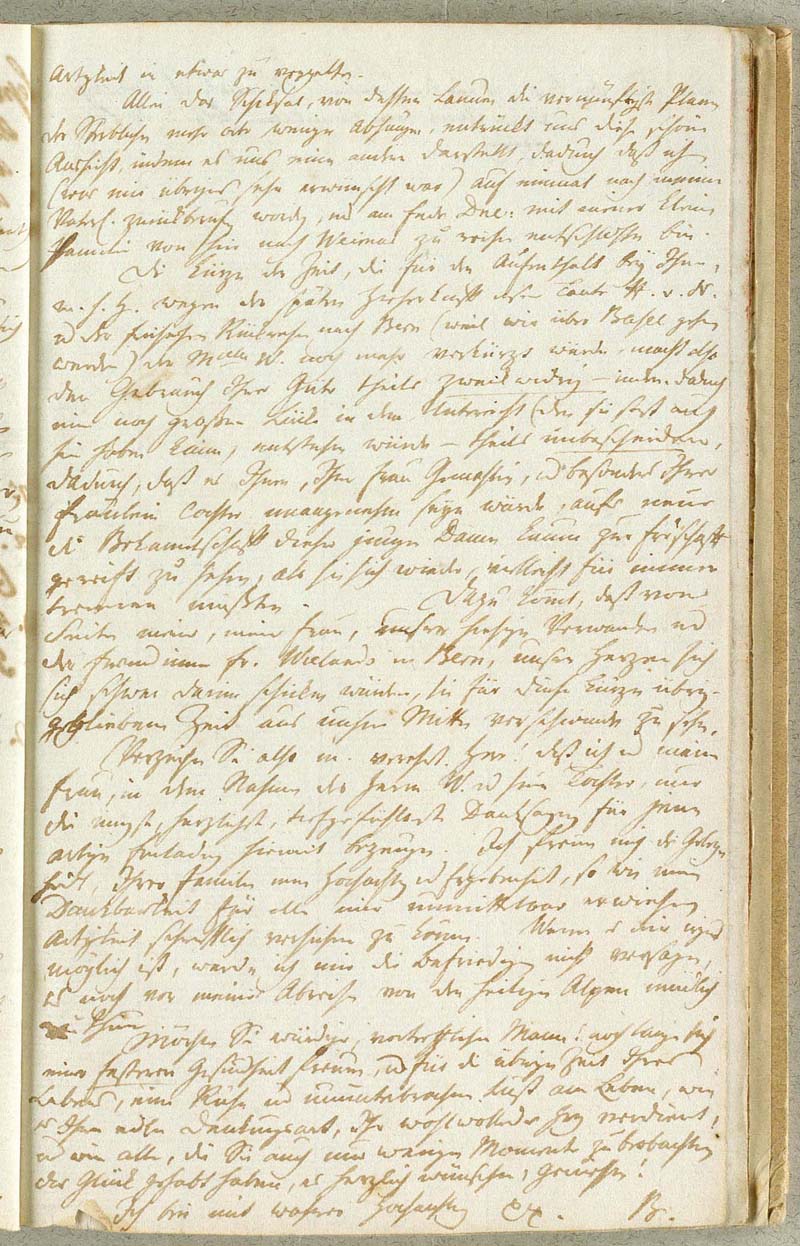 Artigkeit in etwas zu vergelten.
Allein das Schiksal, von dessen Launen die vernünftigste Plane
der Sterbliche mehr oder weniger abhangen, entrückt uns diese schöne
Aussicht, indem es uns eine andere darstellt, dadurch daß ich
(was mir übrigens sehr erwünscht war) auf einmal nach meinem
Vaterl. zurükberufen worden, und am Ende mit meiner kleinen
Familie von hier nach Weimar zu reisen entschlossen bin.
Die Kürze der Zeit, die für den Aufenthalt bey Ihnen,
m. h. H. wegen der späten Hieherkunft Tante
und der Rükreise nach Bern (weil wir über Basel gehen
werden) der Mselle W. noch mehr verkürzt würde, macht also
den Gebrauch Ihrer Güte theils zwekwidrig – indem dadurch
eine noch große Lüke in dem Unterricht (den sie
hier haben kann) entstehen würde – theils unbescheiden,
dadurch, daß es Ihnen, Ihrer Frau Gemahlin, und besonders Ihrer
Fräulein Tochter unangenehm seyn würde, aufs neue
die Bekanntschaft dieser jungen Damen kaum zur Frdschaft
gereift zu sehen, als sie sich wieder, vielleicht für immer
trennen müßten. Dazu kömt, daß von
Seiten meiner, meiner Frau, unserer hiesigen Verwandten und
der Freundinnen Fr. Wielands in Bern, unsere Herzen sich
sich schwer darein schiken würden, sie für diese kurze übrig-
gebliebene Zeit aus unserer Mitte verschwinden zu sehn.
Verzeihen Sie also m. verehrt. Herr! daß ich und meine
Frau, in dem Nahmen des Herrn W. und seiner Tochter, nur
die innigste, herzlichste, tiefgefühlteste Danksagung für jene
artige Einladung hiemit bezeugen. Ich freue mich die Gelegen-
heit, Ihrer Familie meine Hochachtung und Ergebenheit, so wie meine
Dankbarkeit für alle mir unmittelbar erwiesene
Artigkeit schriftlich versichern zu können. Wenn es mir irgend
möglich ist, werde ich mir die Befriedigung nicht versagen,
es noch vor meiner Abreise von den heiligen Alpen mündlich
zu thun.
Möchten Sie würdiger, vortrefflicher Mann! noch lange sich
einer festeren Gesundheit freuen, und für die übrige Zeit Ihres
Lebens, eine Ruhe und ununterbrochene Lust am Leben, wie
es Ihre edle Denkungsart, Ihr wohlwollendes Herz verdient,
und wie alle, die Sie auch nur wenige Momente zu beobachten
das Glück gehabt haben, es herzlich wünschen, geniessen!
Ich bin mit wahrer Hochachtung